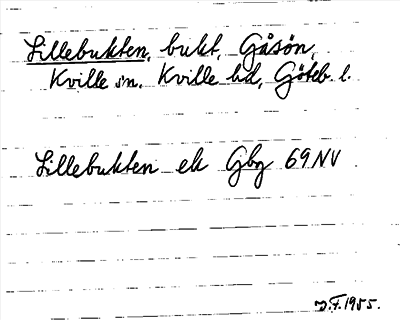 Lillebukten, bukt, Gåsön,
Kville sn, Kville hd, Göteb. l.
Lillebukten ek Gbg 69NV
J.F. 1955.